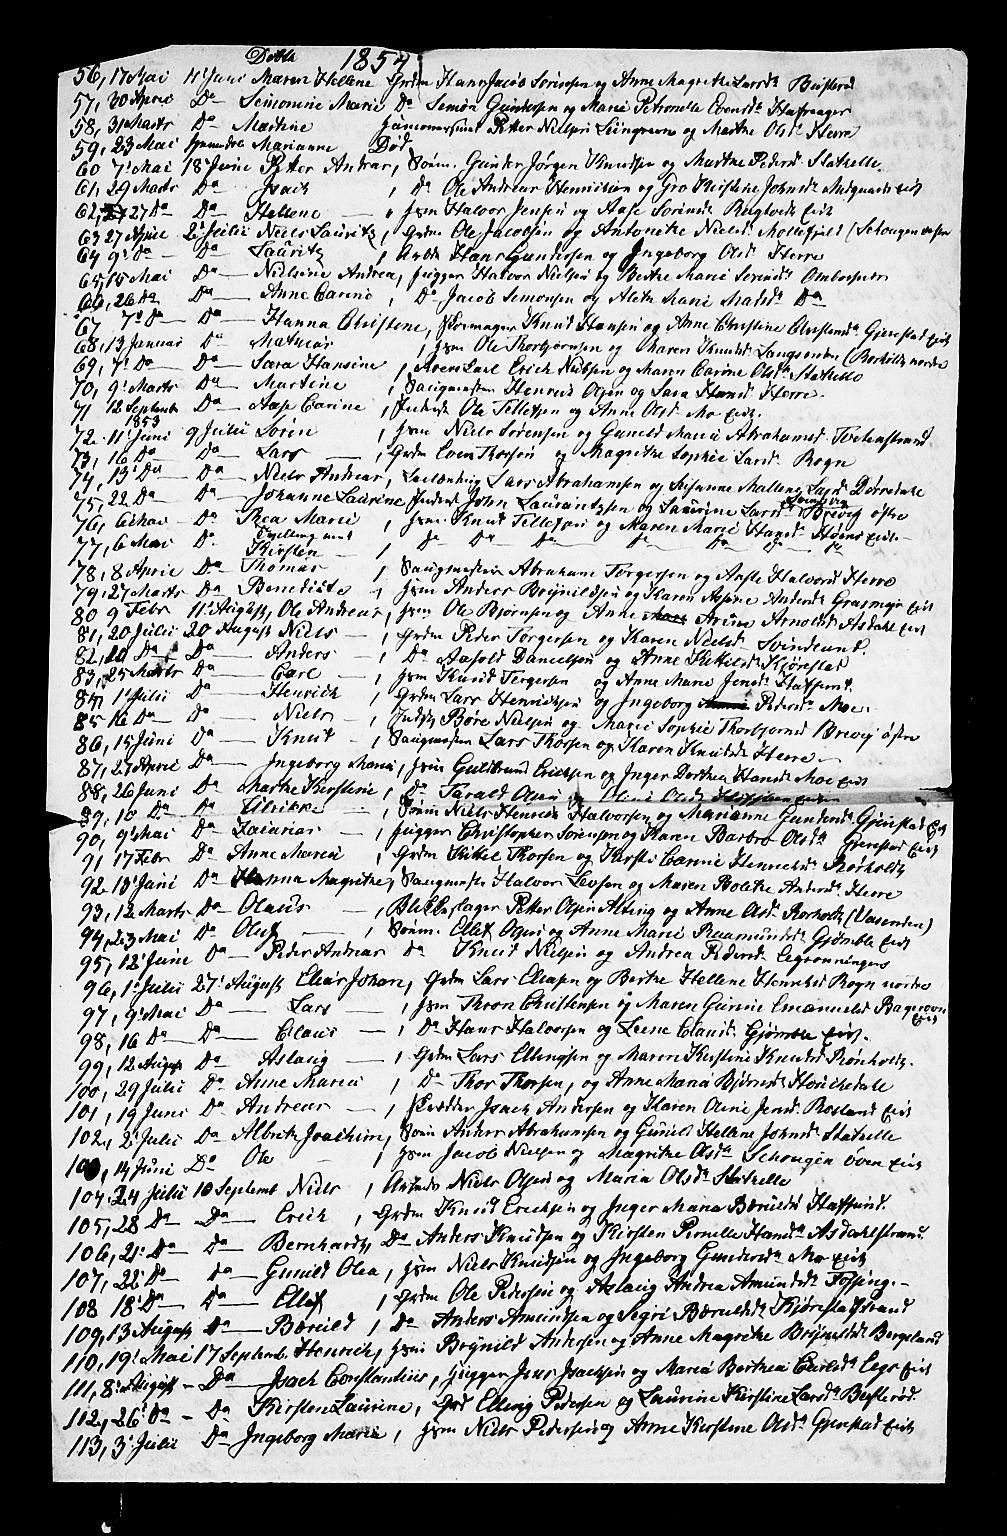 Døbte 1854
56, 17 Mai 11' Juni Maren Hellene Grdm Hans Jacob Sørensen og Anne Magrethe Larsd.
57, 30 Aprie Da Semonine Marie Da Semon Gundersen og Marie Petronelle Evensd.
58, 31 Marts Da Martine Petter Nielsen og Marthe Olsd. Herre
59, 23 Mai Marianne Død
60 7' Mai 18 Junie Petter Andrar, Sønm. Gunder Jørgen Knudsen og Marthe Pedersd. Stathelle
61, 29 Marts Da Isach , Da Ole Andreas Henriksen og Gro Kirstine Johnsd.
62, 27 Da Da Hellene , Jsm Halvor Jensen og Aase Sørensd. Rugtvedt Eiet
63 27 Aprie 2' Julii Niels Lauritz, Grdm Ole Jacobsen og Antonette Nielsd.
64 9' Da Da Lauritz , Arbd Hans Gundersen og Ingeborg Olsd. Herre
65, 15 Mai Da Nielsine Andrea, Jnigger Halvor Nielsen og Berthe Marie
66, 26 Da Da Anne Carine , Da Jacob Semonsen og Aleth Marie Madsd. Da
67 7' Da Da Hanna Christene, Skomager Knud Hansen og Anne Christine Christensd. Grenstad Eiet
68, 13 Januar Da Mathias , Jsm Ole Thorbjørnsen og Maren Knudsd. Langsonden
69, 7' Da Da Sara Hansine , Erich Nielsen og Maren Carine Olsd. Stathelle
70, 9' Marts Da Martine , Saugmester Henrich Olsen og Sara Hansd. Herre
71 12 Septemb 1853 Da Aase Carine , Inderst Ole Tellefsen og Anne Olsd. Mo Eiet.
72. 11' Juni 9 Julii Sørin , Jsm Niels Sørensen og Gunild Marie Abrahamsd.
73, 16 Da Da Lars , Grdm Even Thorsen og Magrethe Sophie Larsd. Rogn
74, 13' Da Da Niels Andrear, Lars Abrahamsen og Susanne Mallene Larsd. Dørredale
75, 22 Da Johanne Laurine, Inderst John Laurantzsen og Laurine Larsd. Brevig østre
76, 6 Mai Da Thea Marie , Jsm Knud Tellefsen og Maren Marie Hansd. Eiet
77, 6 Mai Da Tvilling med Kirsten , Da Da Da Da Da Da
78, 8 Aprie Da Thomas , Saugmester Abraham Torgersen og Aaste Halvorsd. Herre
79, 27 Marts Da Benedicte , Jsm Anders Brynildsen og Karen Andersd. Grasmyr Eiet
80 9 Febr 11' August, Ole Andreas, Jsm Ole Bjørnsen og Anne Arine Arnolsd. Asdahl Eiet
81, 20 Julii 20 August Niels , Grdm Peder Torgersen og Karen Nielsd. Svindsund.
82, 20 Da Da Anders , Da Aasold Danielsen og Anne Kittilsd. Kjørestad
83, 25 Marts Da Carl , Jsm Knud Torgersen og Anne Marie Jensd. Hafsund.
84, 1' Julii Da Henrich , Grdm Lars Henrichsen og Ingeborg Pedersd. Moe.
85 16 Da Da Niels , Børe Nielsen og Marie Sophie Thorbjørnsd. Brevig østre
86, 15 Juni Da Knut , Saugmester Lars Thorsen og Karen Knudsd. Herre
87, 27 Aprie Da Ingeborg Maria, Jsm Guldbrand Ericksen og Inger Dorthea Hansd. Moe Eiet
88, 26 Juni Da Marthe Kirstine , Da Tarald Olsen og Oline Olsd.
89, 10 Da Da Ulrikke , Sønm Niels Henrich Halvorsen og Marianne Gundersd. Grenstad Eiet
90, 9' Mai Da Zacarias , Jnigger Christopher Sørensen og Karen Barbro Olsd. Grenstad Eiet
91, 17 Febr Da Anne Maria , Grdm Kittel Thorsen og Kirsti Carine Henrichsd. Rørholdt
92. 18' Juni Da Hanna Magrethe, Saugmester Halvor Levsen og Maren Bolethe Andersd. Herre
93, 12 Marts Da Olaus , Blikkeslager Petter Olsen Alting og Anne Olsd. Rørholt (Vasenden)
94, 23 Mai Da Oluf , Sønm. Ellef Olsen og Anne Marie Rasmundsd. Gjømble Eiet
95, 12' Junie Da Peder Andreas Da Knud Nielsen og Andrea Pedersd.
96, 1' Julii 27' August Elias Johan, Grdm Lars Eliasen og Berthe Hellene Henrichsd. Rogn nordre
97, 9' Mai Da Lars , Jsm Thron Christensen og Maren Gurine Emanuelsd. Eiet
98, 16 Da Da Claus , Da Hans Halvorsen og Leene Clausd. Gjømble Eiet.
99, 12 August Da Aslaug , Grdm Lars Ellingsen og Maren Kirstine Knudsd. Rønholt.
100, 29 Julii Da Anne Maria , Da Thor Thorsen, og Anne Maria Bjørnsd.
101, 19 Juni Da Andreas , Skrædder Isach Andersen og Karen Oline Jensd. Rosland Eiet
102, 2' Julii Da Albreth Joachim, Sønm Anders Abrahamsen og Gunild Hellene Johnsd. Stathelle
103, 14 Juni Da Ole , Jsm Jacob Nielsen og Magrethe Olsd. Schougen øven Eiet
104, 24 Julii 10 Septemb Niels , Arbmd Niels Olsen og Maria Olsd. Stathelle
105, 28 Da Da Erich , Grdm Knud Ericksen og Inger Maria Børuldsd. Hafsund.
106, 21' Da Da Bernhardt, Da Anders Knudsen og Kirsten Pernelle Hansd. Asdahlstrand
107, 22' Da Da Gunild Olea , Jsm Niels Knudsen og Ingeborg Gundersd. Mo Eiet
108 18' Da Da Ellef , Grdm Ole Pedersen og Aslaug Andrea Amundsd. Fossing.
109, 13 August Da Børuld , Da Anders Amundsen og Segri Børuldsd. Kjørestadstrand
110, 19' Mai 17 Septemb. Henrich, Jsm Brynild Andersen og Anne Magrethe Brynildsd. Bergeland
111, 8' August Da Isach Constantius, Jnigger Jens Isachsen og Maria Berthea Carlsd. Eiet
112, 26' Da Da Kirsten Laurine, Grd Elling Pedersen og Laurine Kirstine Larsd. Bustrød.
113, 3' Julii Da Ingeborg Maria , Jsm Niels Pedersen og Anne Kirstine Olsd. Grenstad Eiet